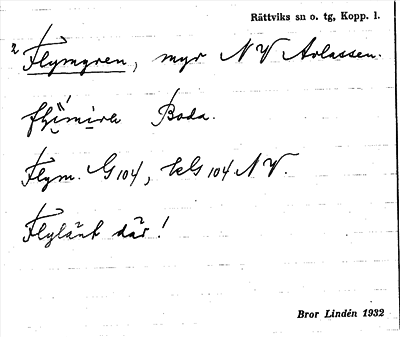 Rättviks sn o. tg, Kopp. l.
2 Flymyren, myr NV Arlassen.
Boda.
Flym. G 104, kG 104 NV.
Flylänt där!
Bror Lindén 1932